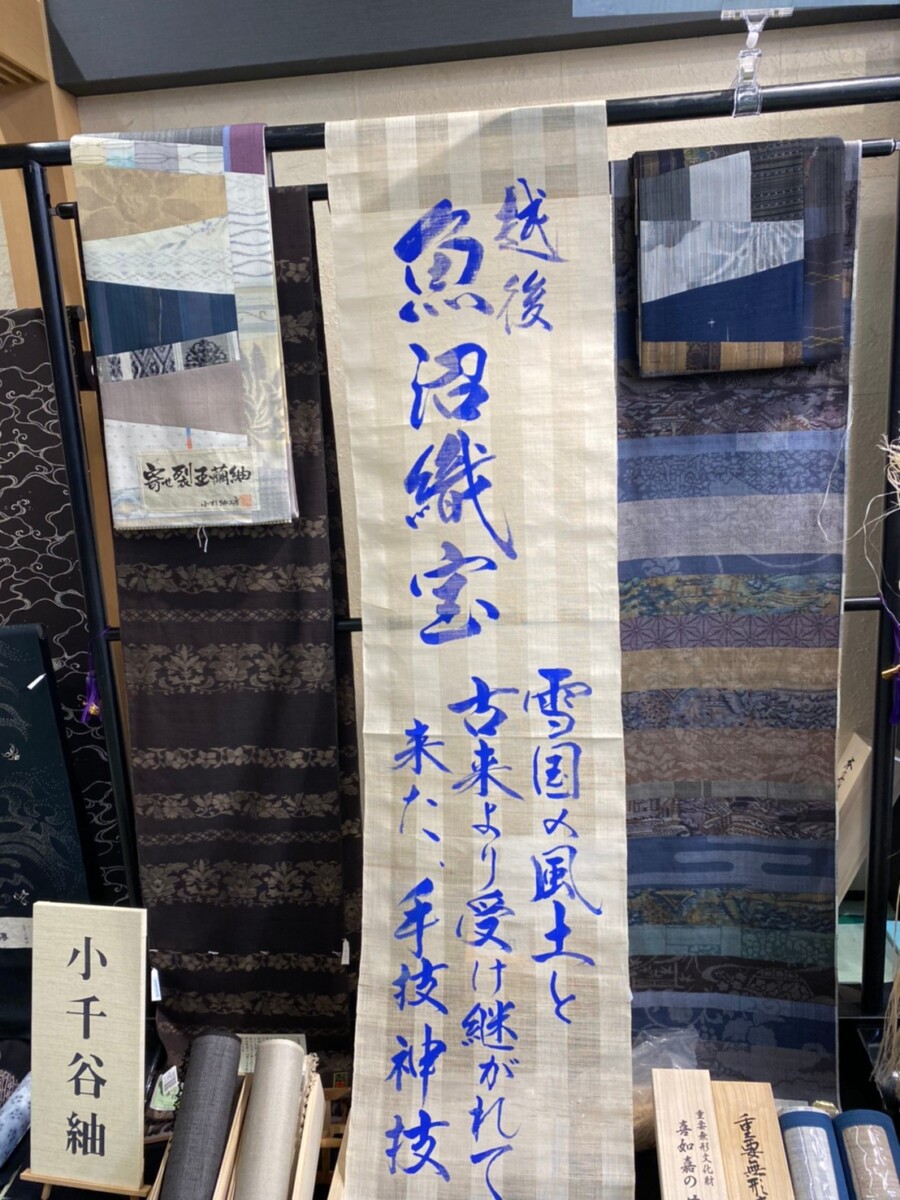 越後
魚沼織宝
雪国の風土と
古来より受け継がれて
来た、手技神技
寄せ裂玉繭紬
小千谷紬
重要無形文化財
喜如嘉の
重要無形